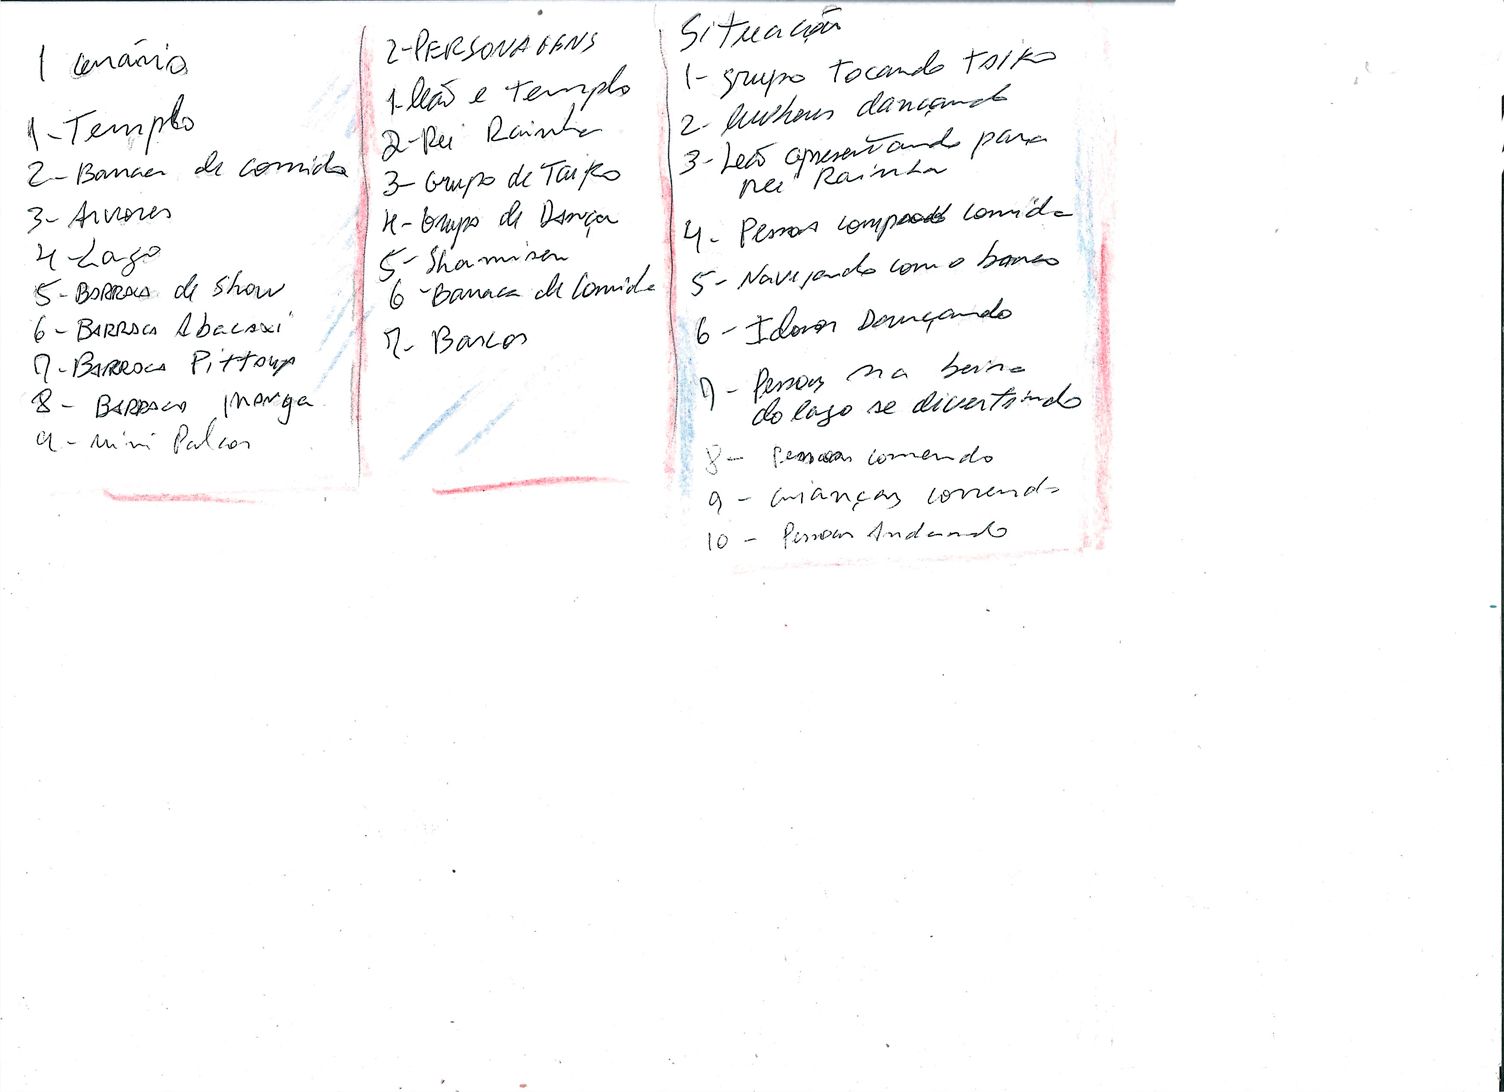 1 Cenário
1-Templo
2-Barraca de comida
3-Arvores
4-Lago
5-BARRACA de Show
6-BARRACA Abacaxi
7-BARRACA
8-BARRACA manga
9-mini Palcos
2-PERSONAGENS
1-leão e templo
2-Rei Rainha
3-Grupo de Taiko
4-Grupo de Dança
5-Shamisen
6-Barraca de Comida
7-Barcos
Situação
1-grupo Tocando Taiko
2-mulheres dançando
3-Leão apresentando para
rei Rainha
4-Pessoas comprando comida
5-Navegando com o barco
6-Idosos Dançando
7-Pessoas na beira
do lago se divertindo
8-Pessoas comendo
9-crianças correndo
10-Pessoas Andando